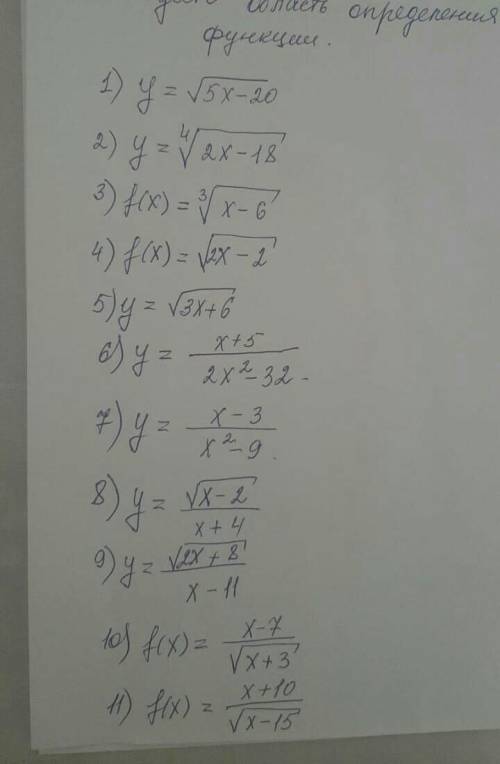 область определения
функции.
1) y = √5x-20
2) y = ⁴√2x-18
3) f(x) = ³√x-6
4) f(x) = √2x-2
5) y = √3x+6
6) y = x+5 / 2x²-32.
7) y = x-3 / x²-9.
8) y = √x-2 / x+4
9) y = √2x+8 / x-11
10) f(x) = x-7 / √x+3
11) f(x) = x+10 / √x-15